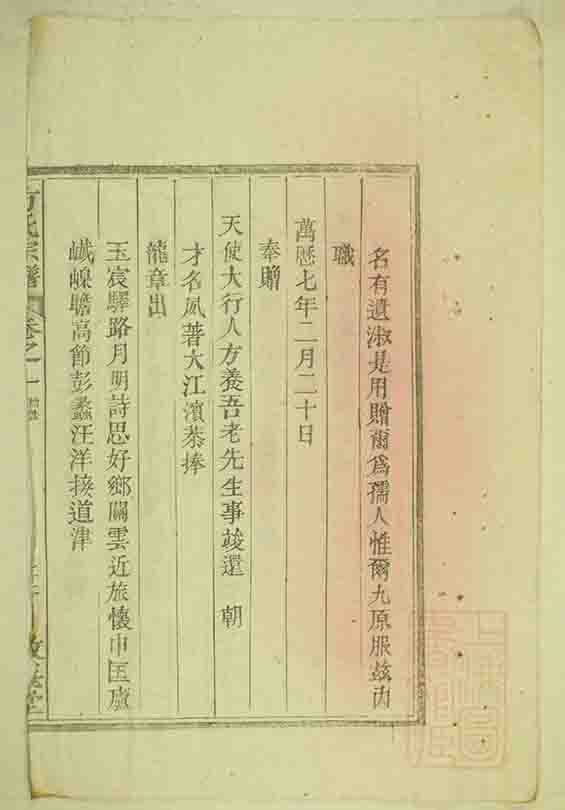 名有遺淑是用贈爾為孺人惟爾九原服茲內
職
萬曆七年二月二十日
奉贈
天使大行人方養吾老先生事竣還 朝
才名夙著大江濱恭捧
龍章出
玉宸驛路月明詩思好鄉關雲近旅懷申匡廬
巇嵲瞻高節彭蠡汪洋接道津
方氏宗譜 卷之一